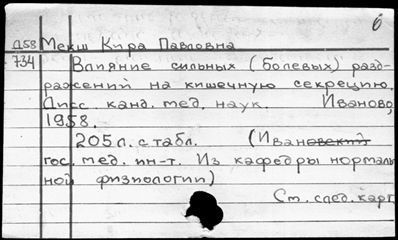 б
Д58 Мекш Кира Павловна
734 Влияние сильных (болевых) разд-
ражений на кишечную секрецию.
Дисс. канд. мед. наук. Иваново,
1958.
205 л. с табл. (Ивановский
гос. мед. ин-т. Из кафедры нормаль
ной физиологии)
См. след. карт.